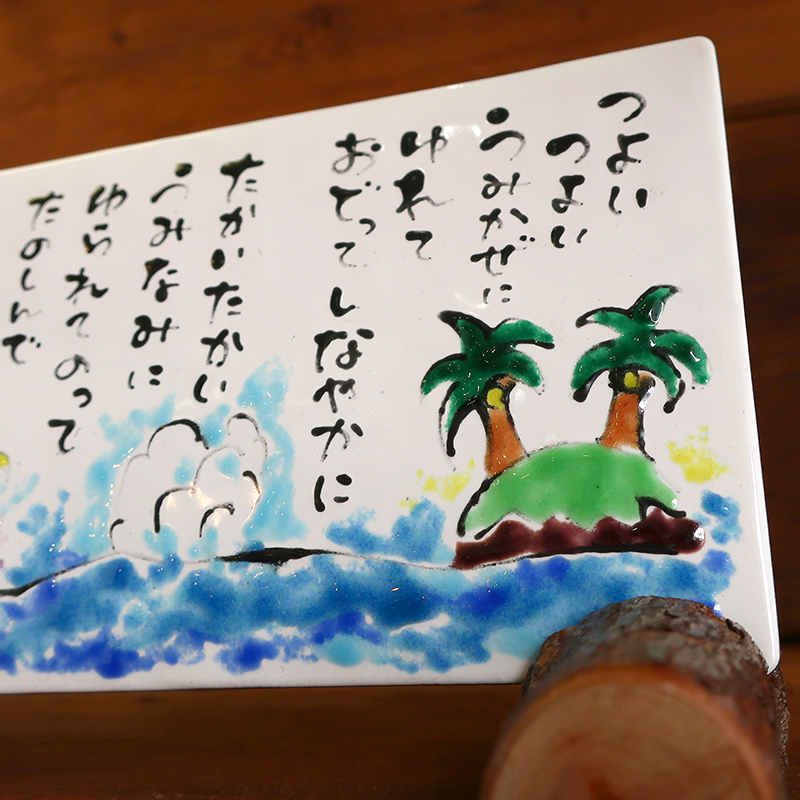 つよい
つよい
うみかぜに
ゆれて
おどって しなやかに
たかいたかい
うみなみに
ゆられてのって
たのしんで